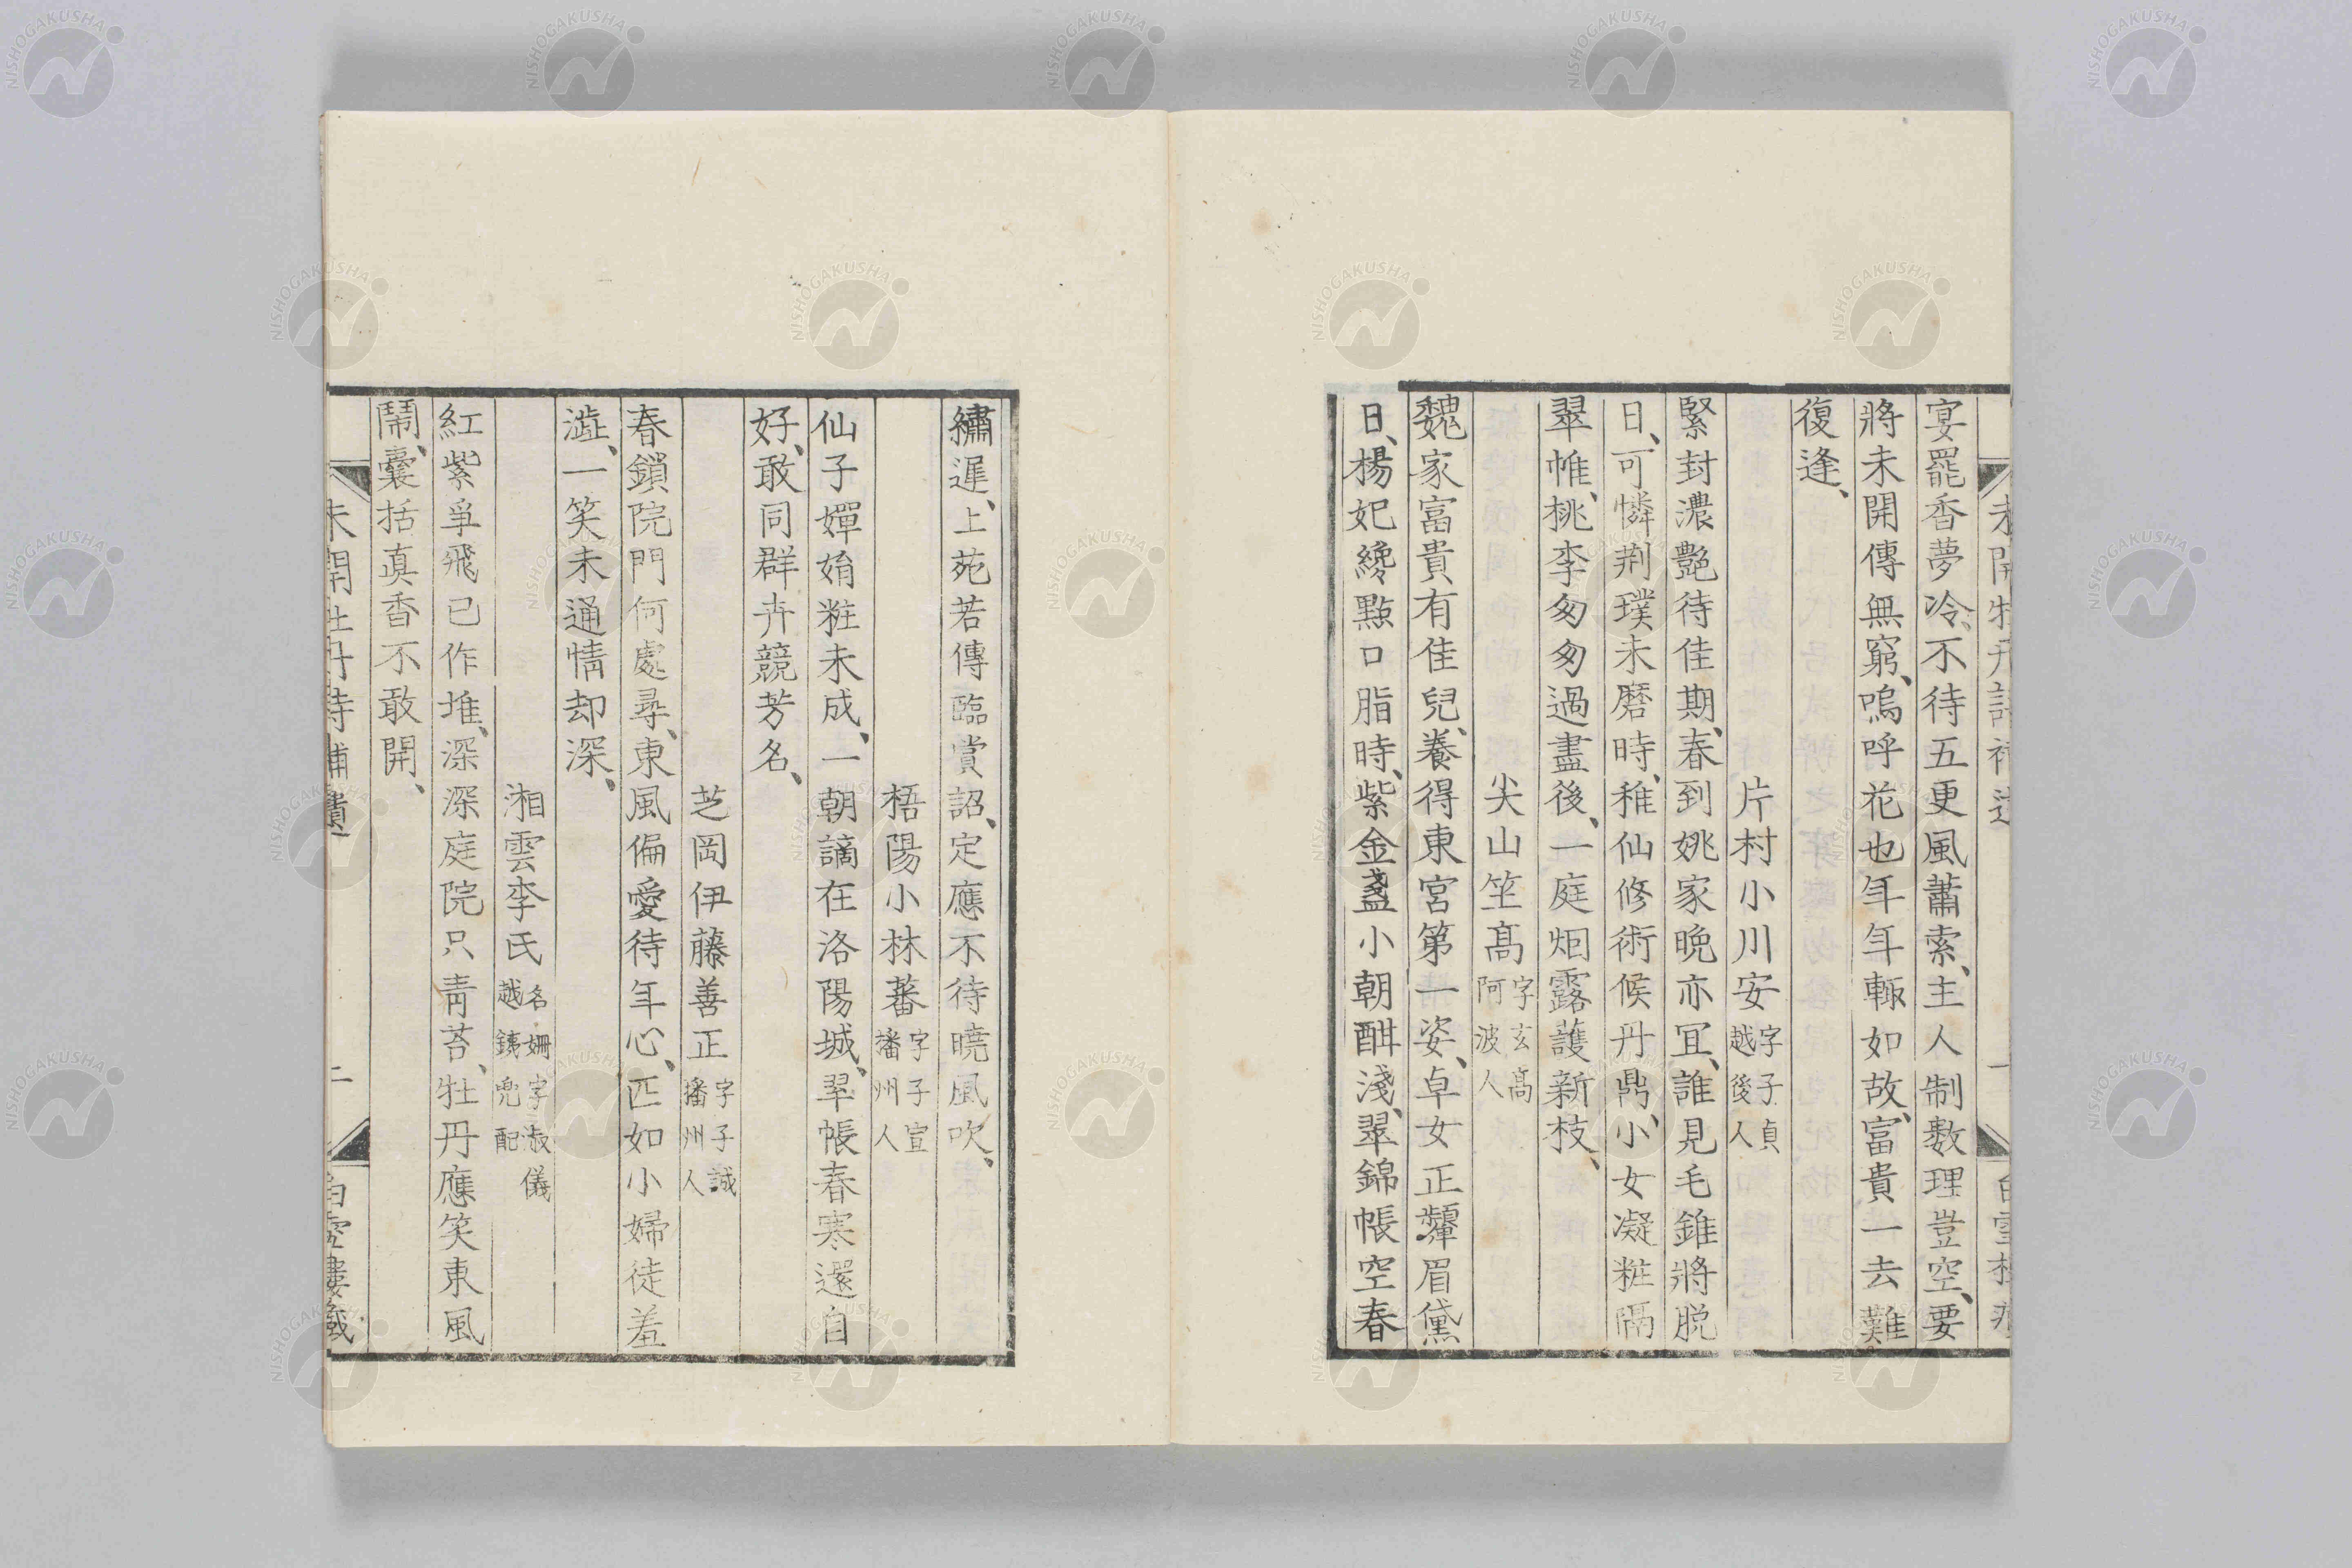 未開牡丹詩補遺
一
宴罷香夢冷、不待五更風蕭索、主人制数理豈空、要
將未開傳無窮、嗚呼花也年年輙如故、富貴一去難
復逢、
片村小川安 字子貞 越後人
緊封濃艶待佳期、春到姚家晩亦冝、誰見毛錐將脱
日、可憐荆璞未磨時、稚仙修術候丹鼎、小女凝粧隔
翠帷、桃李匆匆過盡後、一庭烟露護新枝、
尖山笁髙 字玄髙 阿波人
魏家富貴有佳兒、養得東宮第一姿、卓女正顰眉黛
日、楊妃纔點口脂時、紫金盞小朝酣淺、翠錦帳空春
繡遲、上苑若傳臨賞詔、定應不待曉風吹、
梧陽小林蕃 字子宣 播州人
仙子嬋娟粧未成、一朝謫在洛陽城、翠帳春寒還自
好、敢同群卉競芳名、
芝岡伊藤善正 字子誠 播州人
春鎖院門何處尋、東風偏愛待年心、匹如小婦徒羞
澁、一笑未通情却深、
湘雲李氏 名姗字淑儀 越銕兜配
紅紫爭飛已作堆、深深庭院只青苔、牡丹應笑東風
鬧、囊括眞香不敢開、
未開牡丹詩補遺
二
白雪樓藏